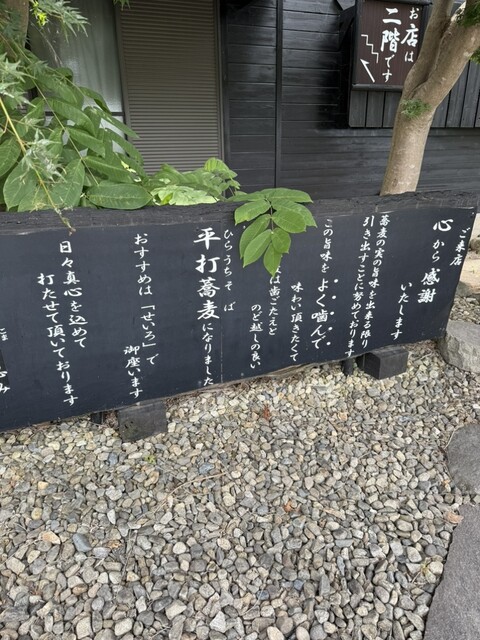 お店は
二階です
ご来店
心から感謝
いたします
蕎麦の実の旨味を出来る限り
引き出すことに努めております
この旨味を
よく噛んで
味わい頂きたくて
は歯ごたえと
のど越しの良い
ひらうちそば
平打蕎麦になりました
おすすめは「せいろ」で
御座います
日々真心を込めて
打たせて頂いております